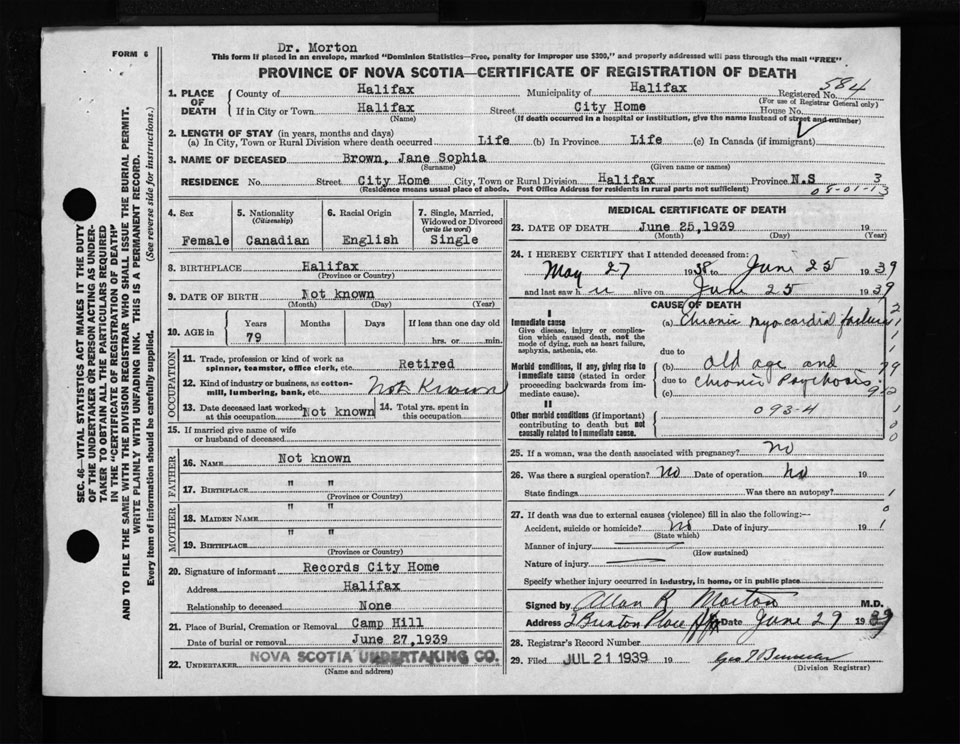 FORM 6
Dr. Morton
This form if placed in an envelope, marked "Dominion Statistics—Free, penalty for improper use $300," and properly addressed will pass through the mail "FREE"
PROVINCE OF NOVA SCOTIA—CERTIFICATE OF REGISTRATION OF DEATH
584
1. PLACE OF DEATH
County of Halifax Municipality of Halifax Registered No.
(For use of Registrar General only)
If in City or Town Halifax Street City Home House No.
(Name) (If death occurred in a hospital or institution, give the name instead of street and number)
2. LENGTH OF STAY (in years, months and days)
(a) In City, Town or Rural Division where death occurred Life (b) In Province Life (c) In Canada (if immigrant)
3. NAME OF DECEASED Brown, Jane Sophia
(Surname) (Given name or names)
RESIDENCE No. Street City Home City, Town or Rural Division Halifax Province N.S 3
(Residence means usual place of abode. Post Office Address for residents in rural parts not sufficient) 08-01-13
4. Sex Female
5. Nationality (Citizenship) Canadian
6. Racial Origin English
7. Single, Married, Widowed or Divorced (write the word) Single
8. BIRTHPLACE Halifax
(Province or Country)
9. DATE OF BIRTH Not known
(Month) (Day) (Year)
10. AGE in Years Months Days If less than one day old
79 hrs. or min.
OCCUPATION
11. Trade, profession or kind of work as spinner, teamster, office clerk, etc. Retired
12. Kind of industry or business, as cotton-mill, lumbering, bank, etc. Not Known
13. Date deceased last worked at this occupation Not known 14. Total yrs. spent in this occupation
15. If married give name of wife or husband of deceased
FATHER
16. NAME Not known
17. BIRTHPLACE " "
(Province or Country)
MOTHER
18. MAIDEN NAME " "
19. BIRTHPLACE " "
(Province or Country)
20. Signature of informant Records City Home
Address Halifax
Relationship to deceased None
21. Place of Burial, Cremation or Removal Camp Hill
Date of burial or removal June 27,1939
22. UNDERTAKER NOVA SCOTIA UNDERTAKING CO.
(Name and address)
MEDICAL CERTIFICATE OF DEATH
23. DATE OF DEATH June 25,1939 19
(Month) (Day) (Year)
24. I HEREBY CERTIFY that I attended deceased from:
May 27 1938 to June 25 1939
and last saw h alive on June 25 1939
CAUSE OF DEATH
I
Immediate cause
Give disease, injury or complication which caused death, not the mode of dying, such as heart failure, asphyxia, asthenia, etc.
(a) Chronic myocardial failure
due to
Morbid conditions, if any, giving rise to immediate cause (stated in order proceeding backwards from immediate cause).
(b) old age and 79
due to Chronic Psychosis
(c)
II
Other morbid conditions (if important) contributing to death but not causally related to immediate cause.
093-4
25. If a woman, was the death associated with pregnancy? no
26. Was there a surgical operation? no Date of operation no
State findings Was there an autopsy?
27. If death was due to external causes (violence) fill in also the following:—
Accident, suicide or homicide? no Date of injury 19
(State which)
Manner of injury
(How sustained)
Nature of injury
Specify whether injury occurred in industry, in home, or in public place
Signed by Allan R Morton M.D.
Address Place Hfx Date June 29 1939
28. Registrar's Record Number
29. Filed JUL 21 1939 19
(Division Registrar)
SEC. 46—VITAL STATISTICS ACT MAKES IT THE DUTY
OF THE UNDERTAKER OR PERSON ACTING AS UNDER-
TAKER TO OBTAIN ALL THE PARTICULARS REQUIRED
IN THE "CERTIFICATE OF REGISTRATION OF DEATH"
AND TO FILE THE SAME WITH THE DIVISION REGISTRAR WHO SHALL ISSUE THE BURIAL PERMIT.
WRITE PLAINLY WITH UNFADING INK. THIS IS A PERMANENT RECORD.
Every item of information should be carefully supplied. (See reverse side for instructions.)